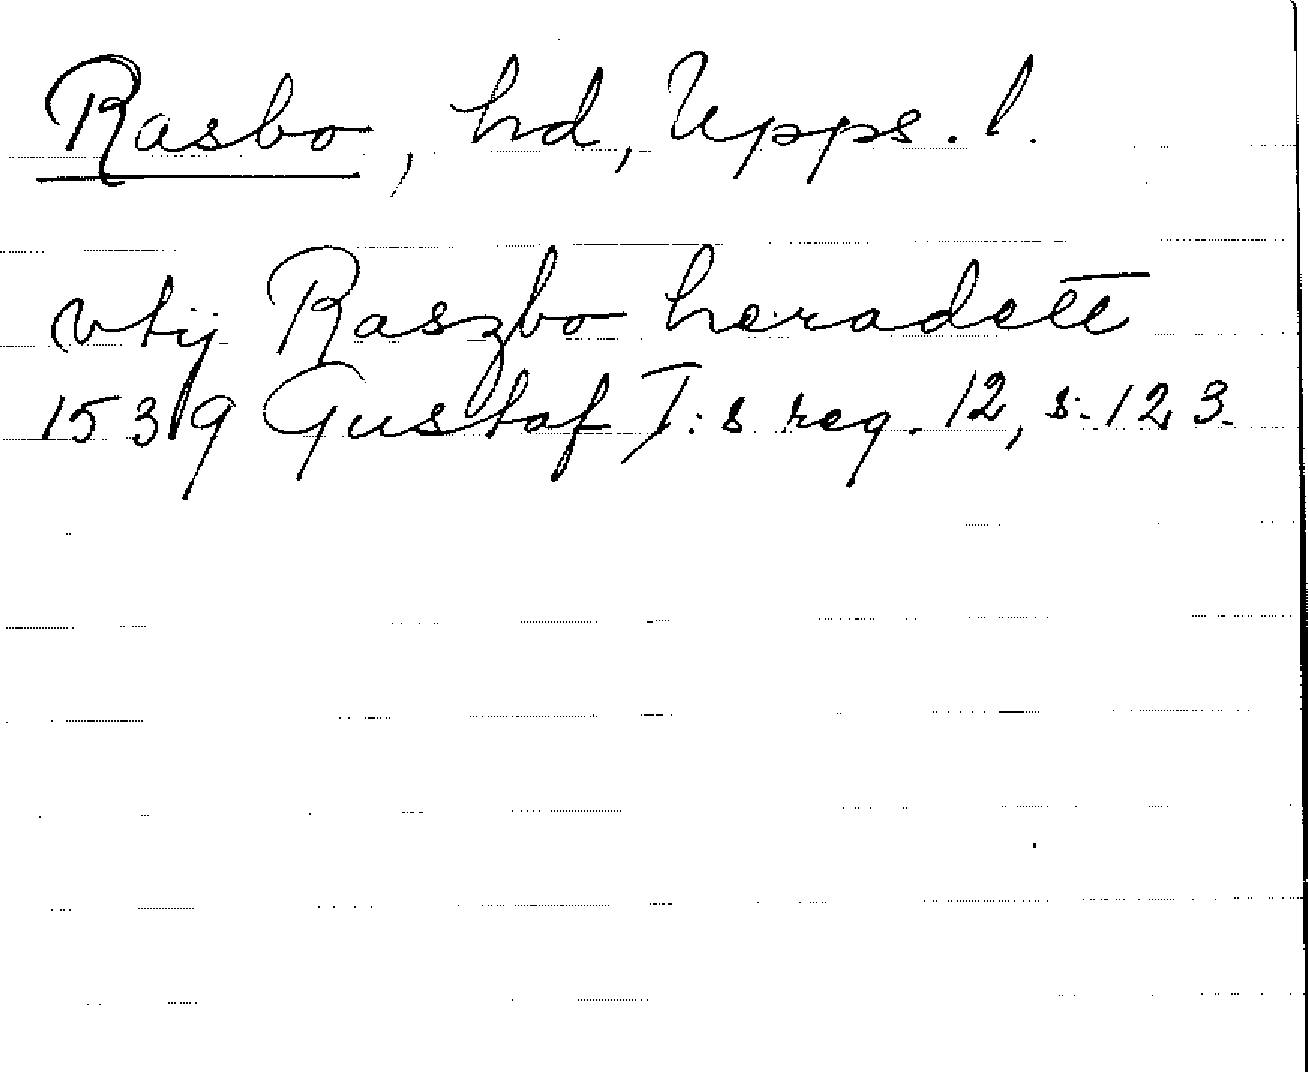 Rasbo, hd, Upps. l.
vtij Raszbo heradett
1539 Gustaf I:s reg. 12, s. 123.